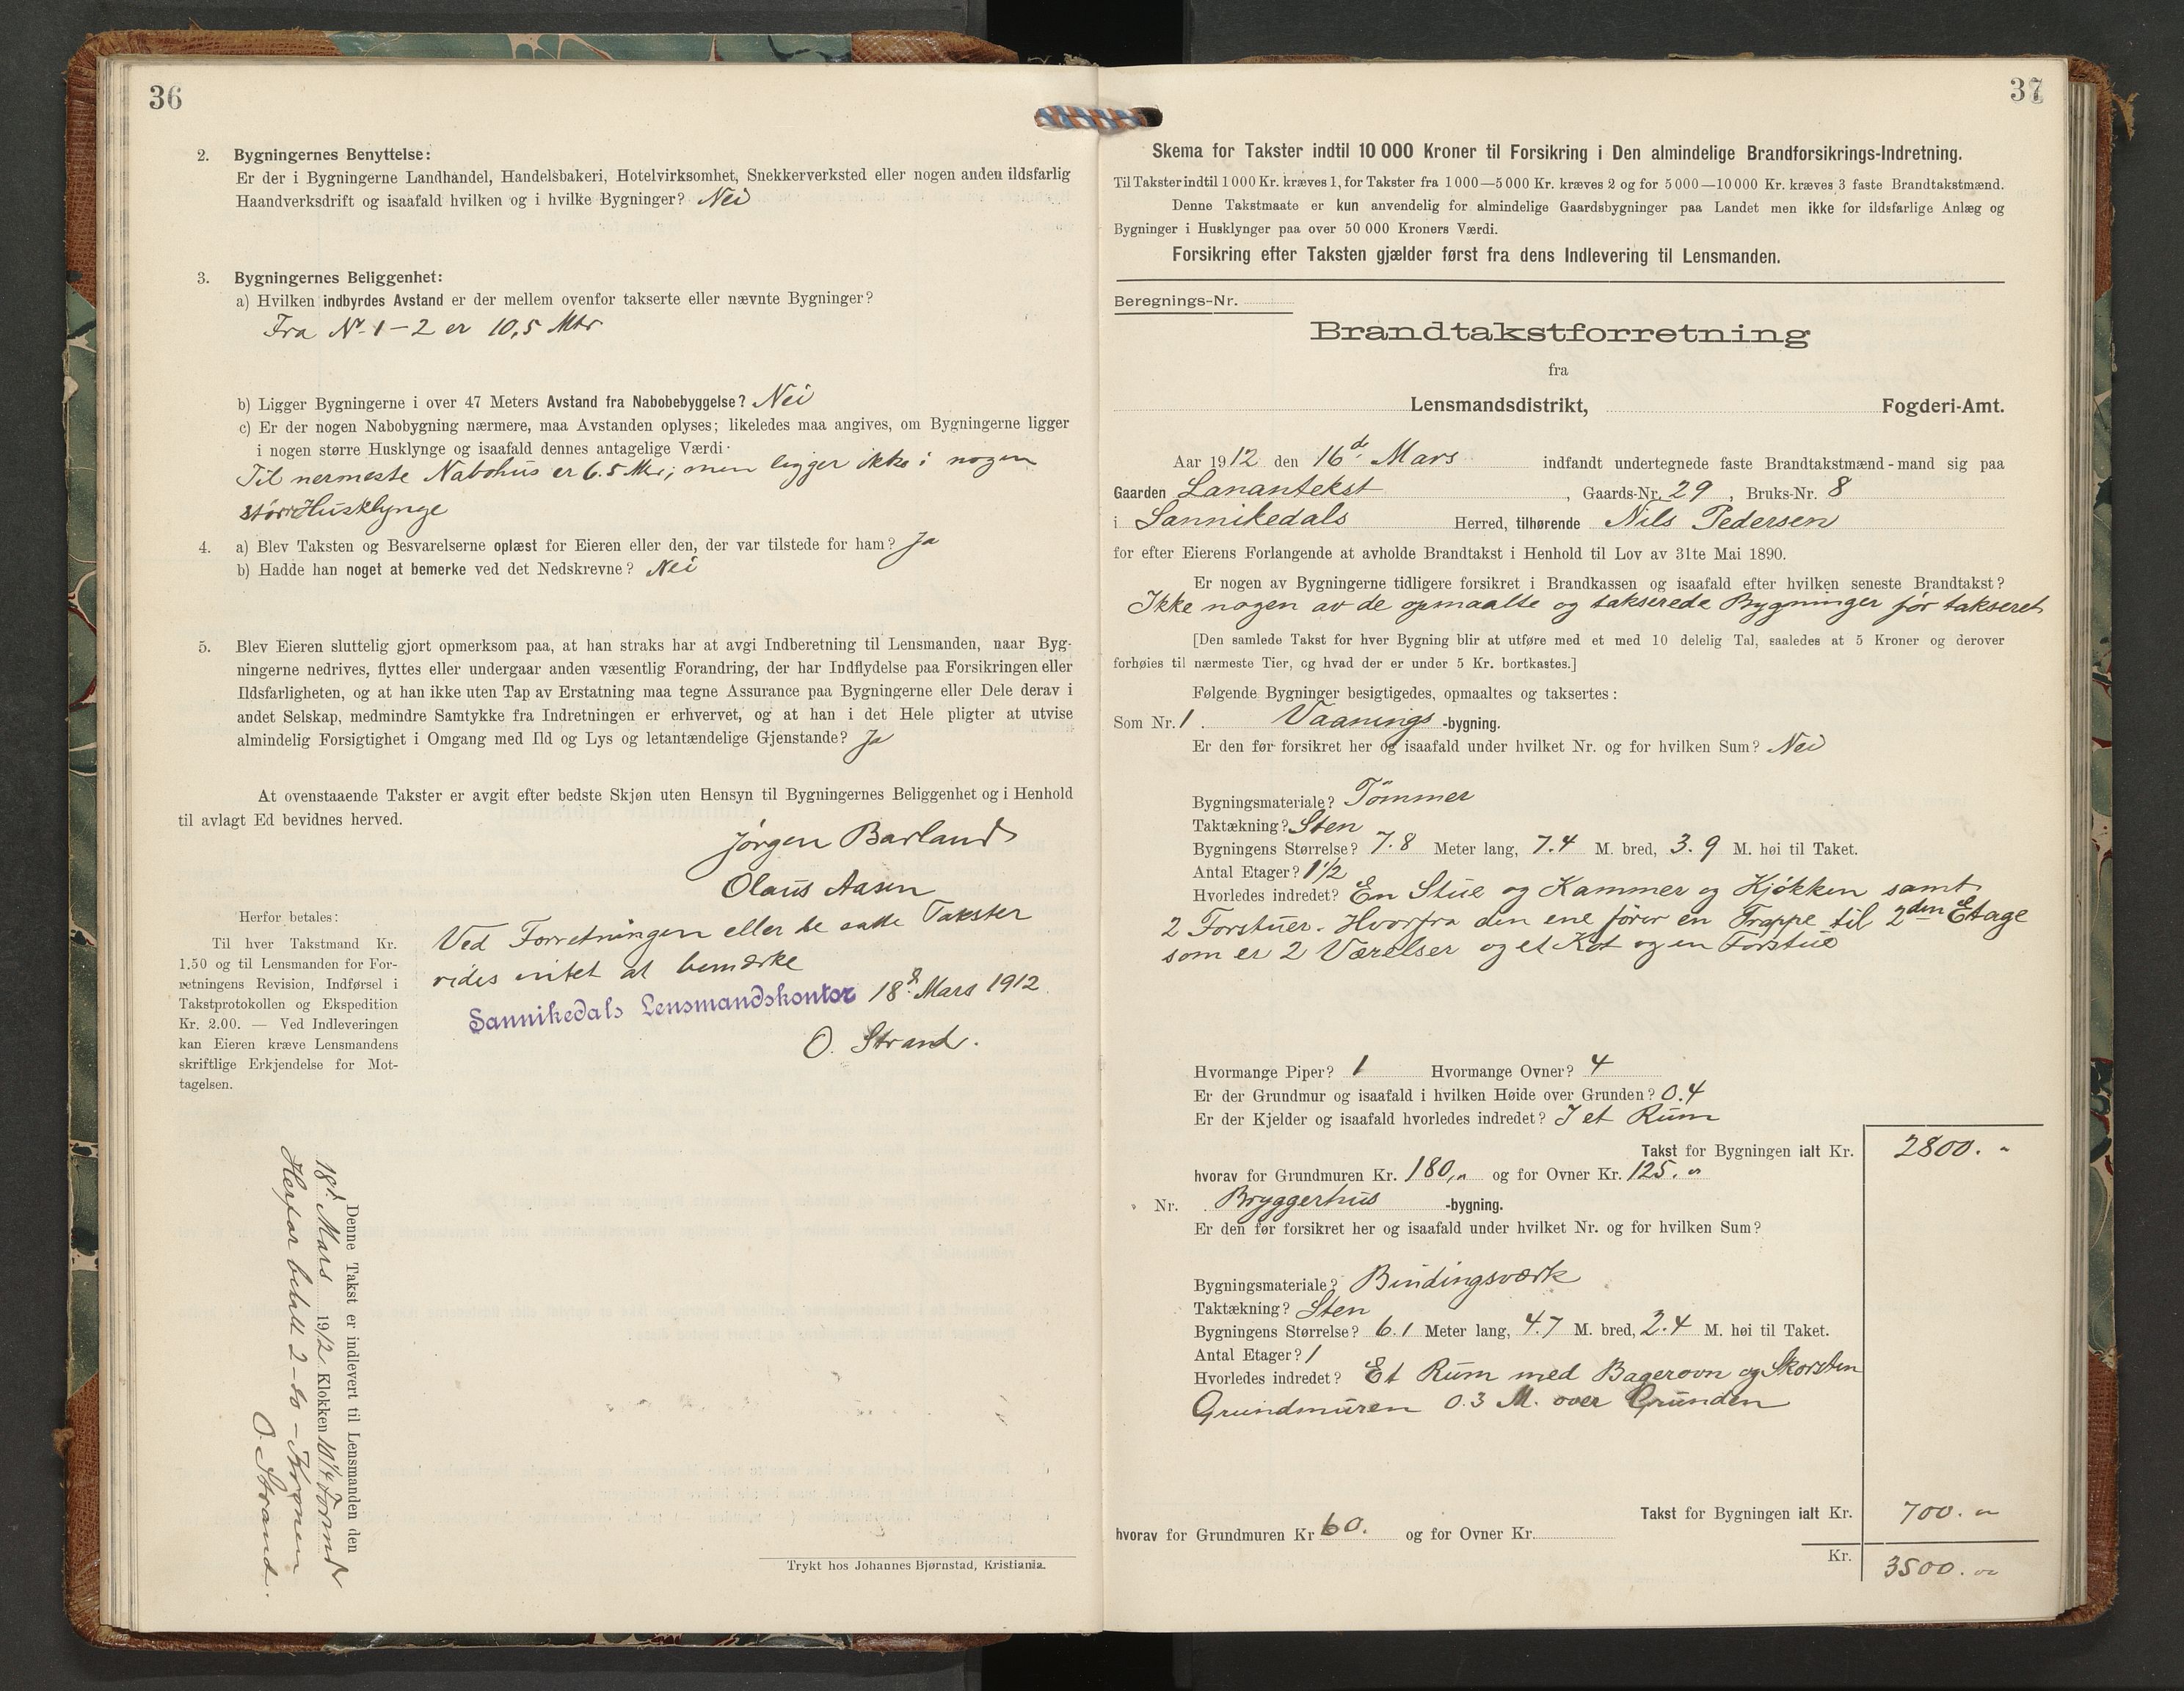 36
2. Bygningernes Benyttelse:
Er der i Bygningerne Landhandel, Handelsbakeri, Hotelvirksomhet, Snekkerverksted eller nogen anden ildsfarlig
Haandverksdrift og isaafald hvilken og i hvilke Bygninger? Nei
3. Bygningernes Beliggenhet:
a) Hvilken indbyrdes Avstand er der mellem ovenfor takserte eller nævnte Bygninger?
Fra Nr. 1 - 2 er 10,5 Mtr
b) Ligger Bygningerne i over 47 Meters Avstand fra Nabobebyggelse? Nei
c) Er der nogen Nabobygning nærmere, maa Avstanden oplyses; likeledes maa angives, om Bygningerne ligger
i nogen større Husklynge og isaafald dennes antagelige Værdi.
Til nermeste Nabohus er 6.5 Mtr; men ligger ikke i nogen
større Husklynge
4. a) Blev Taksten og Besvarelserne oplæst for Eieren eller den, der var tilstede for ham? Ja
b) Hadde han noget at bemerke ved det Nedskrevne? Nei
5. Blev Eieren sluttelig gjort opmerksom paa, at han straks har at avgi Indberetning til Lensmanden, naar Byg-
ningerne nedrives, flyttes eller undergaar anden væsentlig Forandring, der har Indflydelse paa Forsikringen eller
Ildsfarligheten, og at han ikke uten Tap av Erstatning maa tegne Assurance paa Bygningerne eller Dele derav i
andet Selskap, medmindre Samtykke fra Indretningen er erhvervet, og at han i det Hele pligter at utvise
almindelig Forsigtighet i Omgang med Ild og Lys og letantændelige Gjenstande? Ja
At ovenstaaende Takster er avgit efter bedste Skjøn uten Hensyn til Bygningernes Beliggenhet og i Henhold
til avlagt Ed bevidnes herved.
Jørgen Barland
Olaus Aasen
Ved Forretningen eller de satte Takster
vides intet at bemærke
Sannikedals Lensmandskontor 18d. Mars 1912
O. Strand.
Herfor betales:
Til hver Takstmand Kr.
1.50 og til Lensmanden for For-
retningens Revision, Indførsel i
Takstprotokollen og Ekspedition
Kr. 2.00. — Ved Indleveringen
kan Eieren kræve Lensmandens
skriftlige Erkjendelse for Mot-
tagelsen.
Denne Takst er indlevert til Lensmanden den
18d. Mars 1912 Klokken 10¼ Formd
Herfor betalt 2 - to - Kronen
O. Strand.
Trykt hos Johannes Bjørnstad, Kristiania.
37
Skema for Takster indtil 10 000 Kroner til Forsikring i Den almindelige Brandforsikrings-Indretning.
Til Takster indtil 1000 Kr. kræves 1, for Takster fra 1000—5000 Kr. kræves 2 og for 5000—10000 Kr. kræves 3 faste Brandtakstmænd.
Denne Takstmaate er kun anvendelig for almindelige Gaardsbygninger paa Landet men ikke for ildsfarlige Anlæg og
Bygninger i Husklynger paa over 50 000 Kroners Værdi.
Forsikring efter Taksten gjælder først fra dens Indlevering til Lensmanden.
Beregnings-Nr.
Brandtakstforretning
fra
Lensmandsdistrikt, Fogderi-Amt.
Aar 1912 den 16d. Mars indfandt undertegnede faste Brandtakstmænd - mand sig paa
Gaarden Lanantekst, Gaards-Nr. 29, Bruks-Nr. 8
i Sannikedals Herred, tilhørende Nils Pedersen
for efter Eierens Forlangende at avholde Brandtakst i Henhold til Lov av 31te Mai 1890.
Er nogen av Bygningerne tidligere forsikret i Brandkassen og isaafald efter hvilken seneste Brandtakst?
Ikke nogen av de opmaalte og takserede Bygninger før takseret
[Den samlede Takst for hver Bygning blir at utføre med et med 10 delelig Tal, saaledes at 5 Kroner og derover
forhøies til nærmeste Tier, og hvad der er under 5 Kr. bortkastes.]
Følgende Bygninger besigtigedes, opmaaltes og taksertes:
Som Nr. 1. Vaanings -bygning.
Er den før forsikret her og isaafald under hvilket Nr. og for hvilken Sum? Nei
Bygningsmateriale? Tømmer
Taktækning? Sten
Bygningens Størrelse? 7.8 Meter lang, 7.4 M. bred, 3.9 M. høi til Taket.
Antal Etager? 1½
Hvorledes indredet? En Stue og Kammer og Kjøkken samt
2 Forstuer. Hvorfra den ene fører en Trappe til 2den Etage
som er 2 Værelser og et Kot og en Forstue
Hvormange Piper? 1 Hvormange Ovner? 4
Er der Grundmur og isaafald i hvilken Høide over Grunden? 0.4
Er der Kjelder og isaafald hvorledes indredet? I et Rum
Takst for Bygningen ialt Kr. 2800.
hvorav for Grundmuren Kr. 180, og for Ovner Kr. 125.
Nr. Bryggerhus -bygning.
Er den før forsikret her og isaafald under hvilket Nr. og for hvilken Sum?
Bygningsmateriale? Bindingsværk
Taktækning? Sten
Bygningens Størrelse? 6.1 Meter lang, 4.7 M. bred, 2.4 M. høi til Taket.
Antal Etager? 1
Hvorledes indredet? Et Rum med Bagerovn og Skorsten
Grundmuren 0.3 M. over Grunden
Takst for Bygningen ialt Kr. 700.
hvorav for Grundmuren Kr 60. og for Ovner Kr.
Kr. 3500.